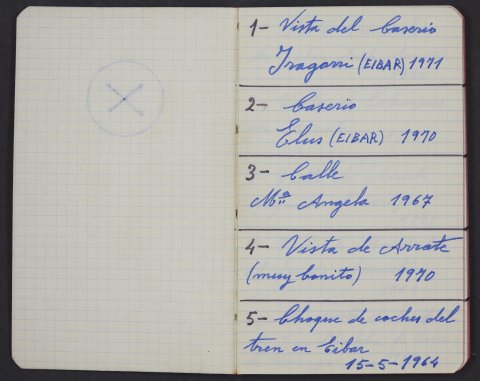 1- Vista del Caserio
Iragorri (EIBAR) 1971
2- Caserio
Elus (EIBAR) 1970
3- Calle
Mª Angela 1967
4- Vista de Arrate
(muy bonito) 1970
5- Choque de coches del
tren en Eibar
15-5-1964